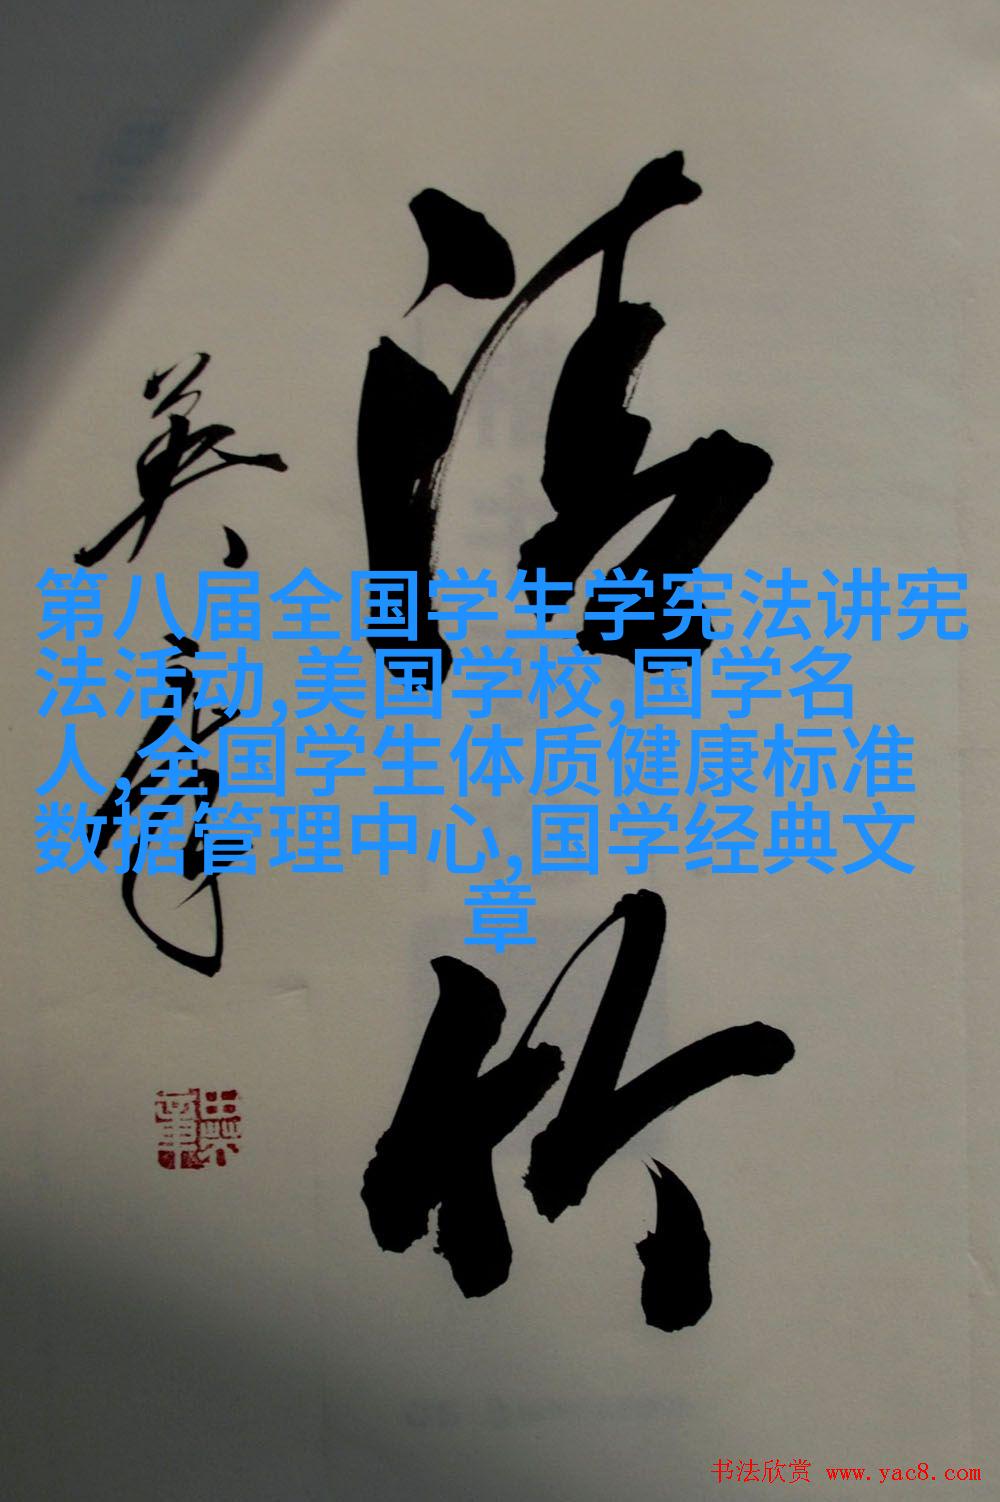 英章
第八届全国学生学宪法讲宪
法活动,美国学校,国学名
人,全国学生体质健康标准
数据管理中心,国学经典文
章
书法欣赏 www.yac8.com